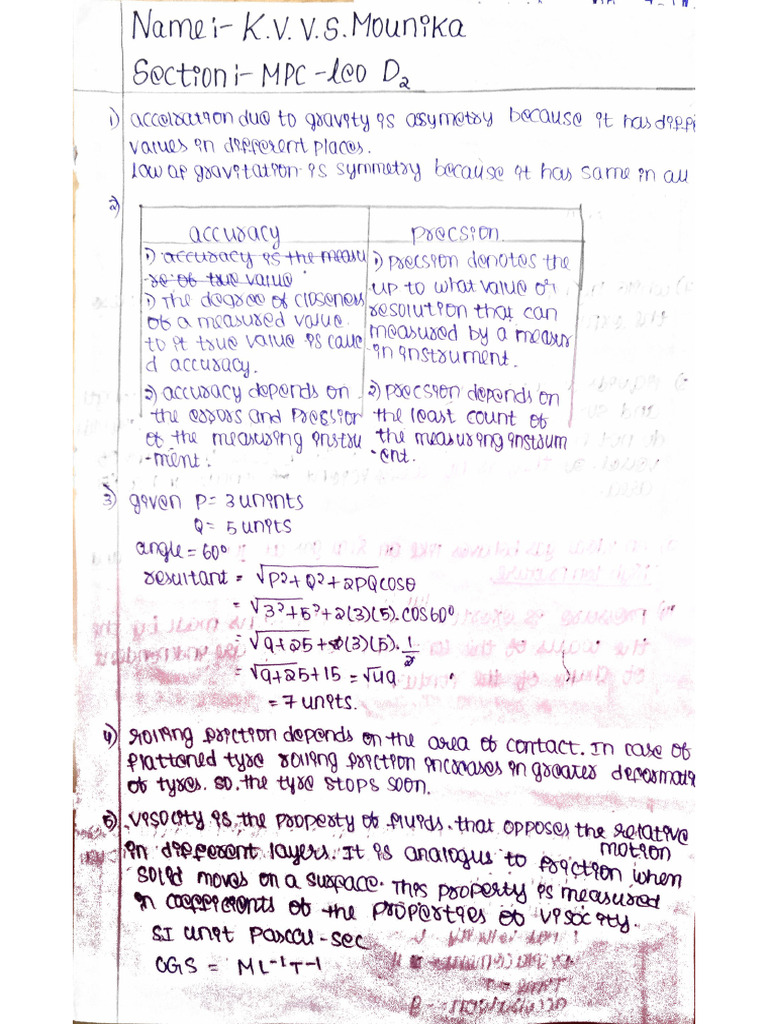 Name:- K.V.V.S.Mounika
Section:- MPC-leo D2
1) accelration due to gravity is asymetry because it has diffe
values in different places.
low of gravitation is symmetry because it has same in all
2)
accuracy
1) accuracy is the measu
re of true value
1) The degree of closeness
of a measured value
to it true value is calle
d accuracy.
2) accuracy depends on
the errors and Precsion
of the measuring instru
-ment.
Precsion.
1) precsion denotes the
up to what value of
resolution that can
measured by a measur
in instrument.
2) Precsion depends on
the least count of
the measuring instrum
-ent.
3) given P= 3 uninTs
Q= 5 units
angle = 60°
resultant = √P²+Q²+2PQcosθ
= √3²+5²+2(3)(5).cos60°
= √9+25+2(3)(5).1/2
= √9+25+15 = √49
= 7 units.
4) Rolling friction depends on the area of contact. In case of
flattoned tyre rolling friction increases in greater deformati
of tyres. so. the tyre stops soon.
5) visocity is the property of fluids. that opposes the relative motion
in different layers. It is analogus to friction when
solid moves on a surface. This property is measured
in coefficients of the properties of visocity.
SI unit Pascal-sec
CGS = ML⁻¹T⁻¹